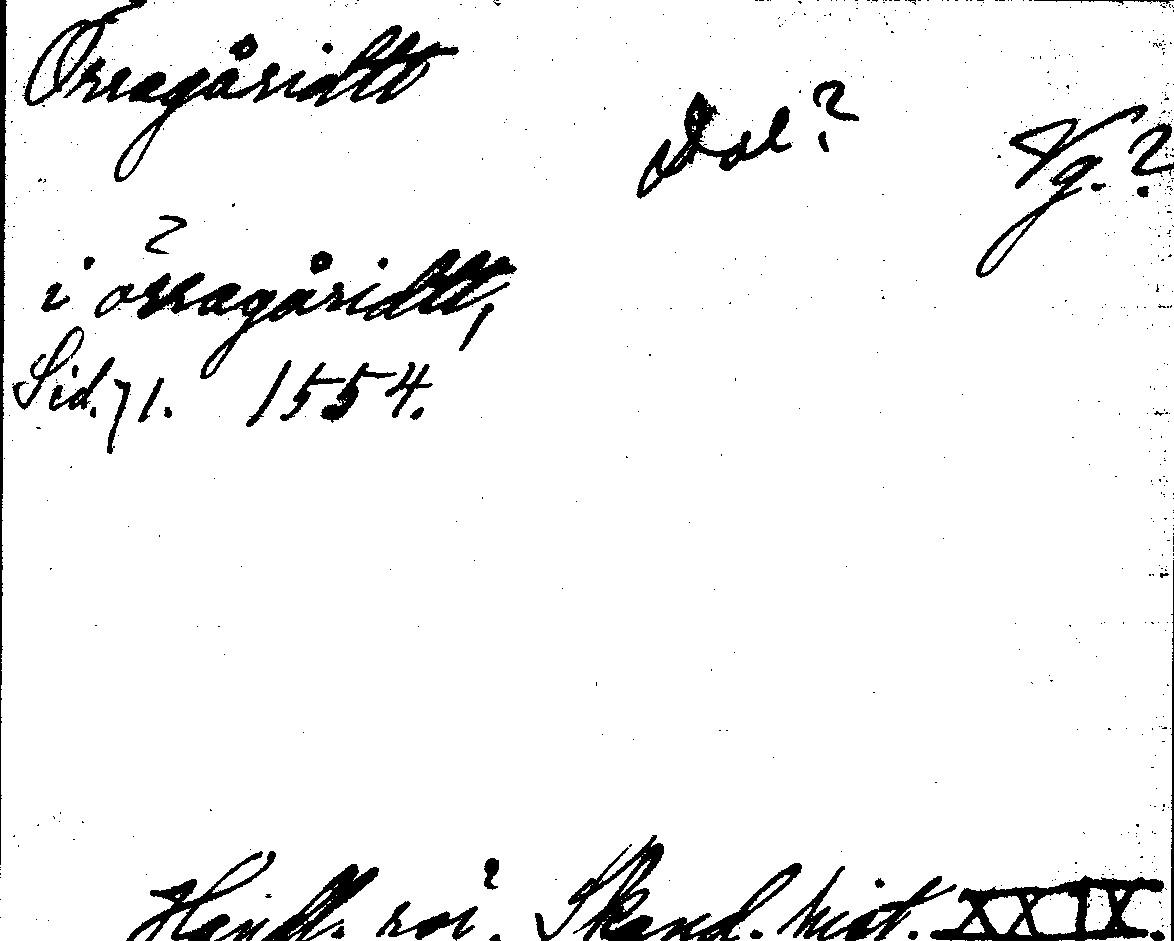 Örsagåsidtt Dal? Vg.?
i örsagåsidtt,
Sid. 71. 1554.
Handl. rör. Skand. hist. XXIX.